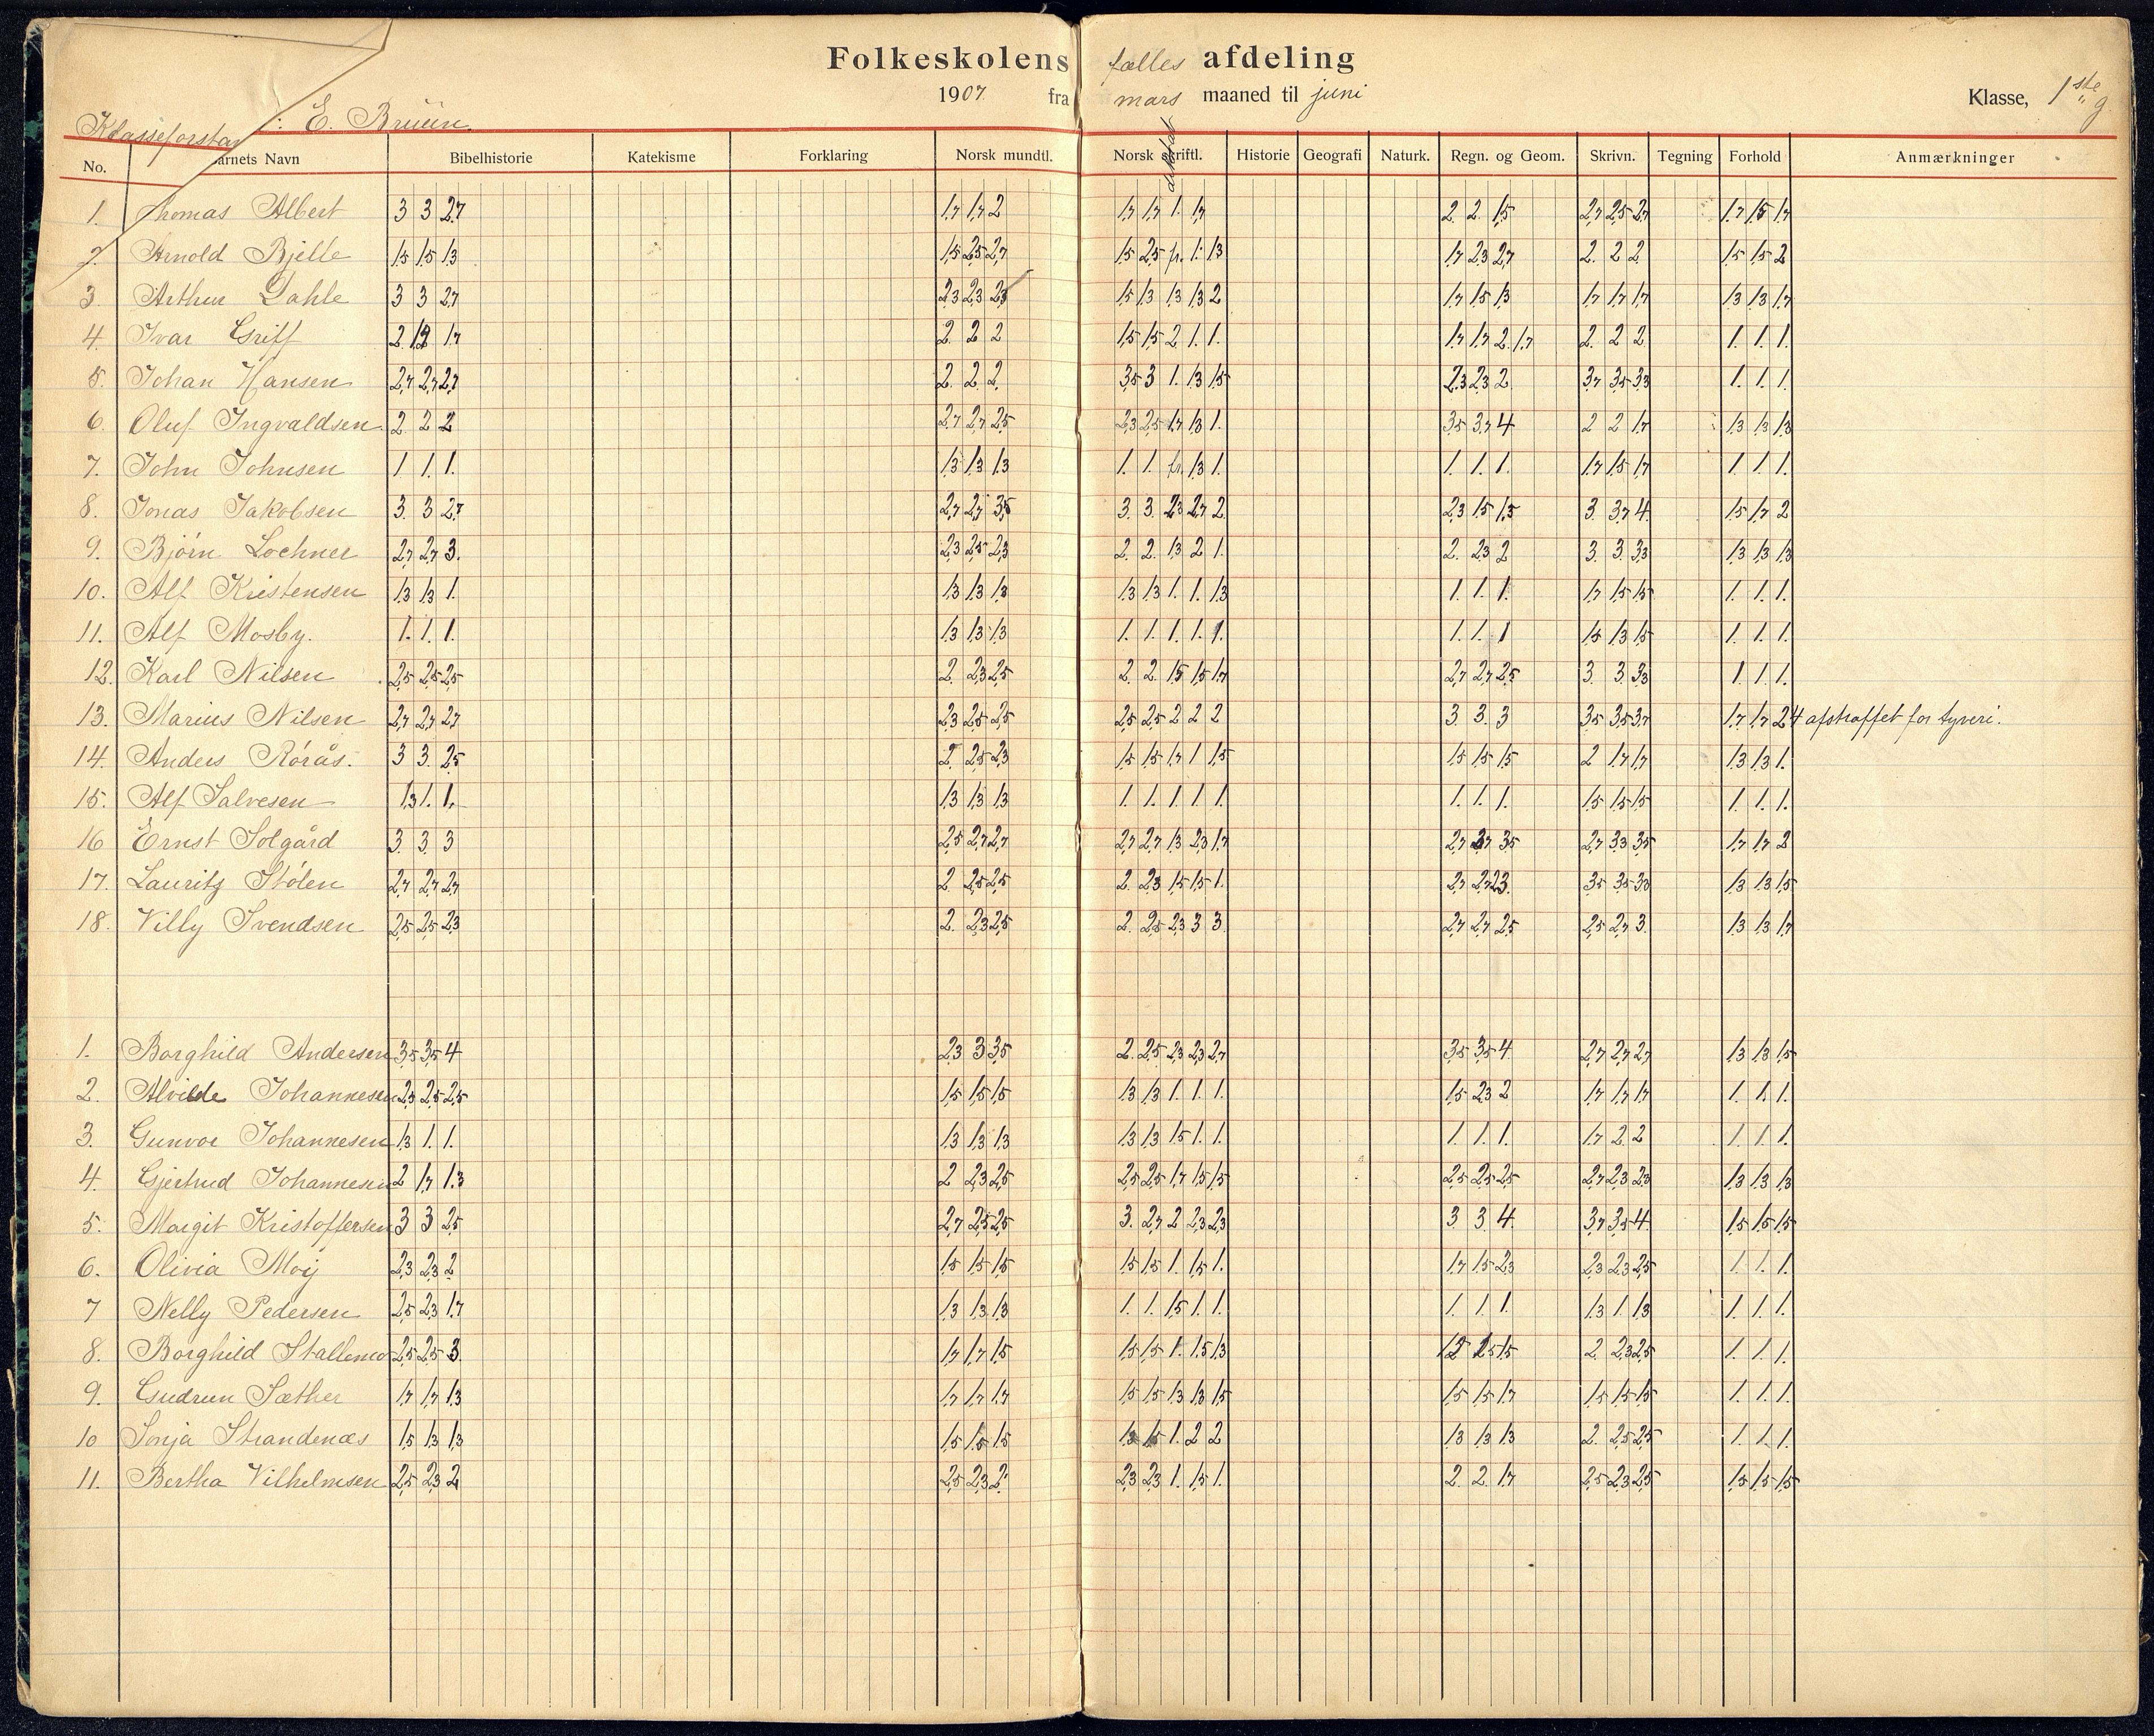 Folkeskolens fælles afdeling
1907 fra mars maaned til juni Klasse, 1ste g.
Klasseforstan : E. Bruun.
No. arnets Navn Bibelhistorie Katekisme Forklaring Norsk mundtl. Norsk skriftl. diktat Historie Geografi Naturk. Regn. og Geom. Skrivn. Tegning Forhold Anmærkninger
1. Thomas Albert 3 3 2,7 1,7 1,7 2 1,7 1,7 1. 1,7 2. 2. 1,5 2,7 2,5 2,7 1,7 1,5 1,7
2. Arnold Bjelle 1,5 1,5 1,3 1,5 2,5 2,7 1,5 2,5 fr. 1. 1,3 1,7 2,3 2,7 2. 2 2 1,5 1,5 2
3. Arthur Dahle 3 3 2,7 2,3 2,3 2,3 1,5 1,3 1,3 1,3 2 1,7 1,5 1,3 1,7 1,7 1,7 1,3 1,3 1,7
4. Ivar Griff 2 1,7 2. 2 2 1,5 1,5 2 1. 1. 1,7 1,7 2. 1,7 2. 2 2 1. 1. 1.
5. Johan Hansen 2,7 2,7 2,7 2. 2. 2. 3,5 3 1. 1,3 1,5 2,3 2,3 2 3,7 3,5 3,3 1. 1. 1.
6. Oluf Ingvaldsen 2. 2 2 2,7 2,7 2,5 2,3 2,5 1,7 1,3 1. 3,5 3,7 4 2 2 1,7 1,3 1,3 1,3
7. John Johnsen 1 1. 1. 1,3 1,3 1,3 1. 1. fr. 1,3 1. 1. 1. 1. 1,7 1,5 1,7 1. 1. 1.
8. Jonas Jakobsen 3. 3 2,7 2,7 2,7 3,5 3. 3. 2,3 2,7 2. 2,3 1,5 1,5 3. 3,7 4. 1,5 1,7 2
9. Bjørn Lochner 2,7 2,7 3. 2,3 2,5 2,3 2. 2. 1,3 2 1. 2. 2,3 2 3. 3. 3,3 1,3 1,3 1,3
10. Alf Kristensen 1,3 1,3 1. 1,3 1,3 1,3 1,3 1,3 1. 1. 1,3 1. 1. 1. 1,7 1,5 1,5 1. 1. 1.
11. Alf Mosby. 1. 1. 1. 1,3 1,3 1,3 1. 1. 1. 1. 1. 1. 1. 1 1,5 1,3 1,5 1. 1. 1.
12. Karl Nilsen 2,5 2,5 2,5 2. 2,3 2,5 2. 2. 1,5 1,5 1,7 2,7 2,7 2,5 3. 3. 3,3 1. 1. 1.
13. Marius Nilsen 2,7 2,7 2,7 2,3 2,5 2,5 2,5 2,5 2 2 2 3 3. 3 3,5 3,5 3,7 1,7 1,7 2,4 afstraffet for tyveri.
14. Anders Rørås. 3 3 2,5 2. 2,5 2,3 1,5 1,5 1,7 1 1,5 1,5 1,5 1,5 2 1,7 1,7 1,3 1,3 1.
15. Alf Salvesen 1,3 1. 1. 1,3 1,3 1,3 1. 1. 1. 1. 1. 1. 1. 1. 1,5 1,5 1,5 1. 1. 1.
16 Ernst Solgård 3. 3. 3 2,5 2,7 2,7 2,7 2,7 1,3 2,3 1,7 2,7 3,5 2,7 3,3 3,5 1,7 1,7 2
17. Lauritz Stølen 2,7 2,7 2,7 2. 2,5 2,5 2. 2,3 1,5 1,5 1. 2,7 2,7 2,3. 3,5 3,5 3,3 1,3 1,3 1,5
18. Villy Svendsen 2,5 2,5 2,3 2. 2,3 2,5 2. 2,5 2,3 3 3. 2,7 2,7 2,5 2,5 2,7 3. 1,3 1,3 1,7
1. Borghild Andersen 3,5 3,5 4 2,3 3 3,5 2. 2,5 2,3 2,3 2,7 3,5 3,5 4 2,7 2,7 2,7 1,3 1,3 1,5
2. Alvilde Johannesen 2,3 2,5 2,5 1,5 1,5 1,5 1,3 1,3 1. 1. 1. 1,5 2,3 2 1,7 1,7 1,7 1. 1. 1.
3. Gunvor Johannesen 1,3 1. 1. 1,3 1,3 1,3 1,3 1,3 1,5 1. 1. 1. 1. 1. 1,7 2. 2 1. 1. 1.
4. Gjertrud Johannesen 2 1,7 1.3 2 2,3 2,5 2,5 2,5 1,7 1,5 1,5 2,5 2,5 2,5 2,7 2,3 2,3 1,3 1,3 1,3
5. Margit Kristoffersen 3 3 2,5 2,7 2,5 2,5 3. 2,7 2 2,3 2,3 3 3 4. 3,7 3,5 4. 1,5 1,5 1,5
6. Olivia Moij 2,3 2,3 2 1,5 1,5 1,5 1,5 1,5 1. 1,5 1. 1,7 1,5 2,3 2,3 2,3 2,5 1. 1. 1.
7 Nelly Pedersen 2,5 2,3 1,7 1,3 1,3 1,3 1. 1. 1,5 1. 1. 1. 1. 1. 1,3 1. 1,3 1. 1. 1.
8. Borghild Stallemo 2,5 2,5 3. 1,7 1,7 1,5 1,5 1,5 1. 1,5 1,3 1,5 2. 2,3 2,5 1. 1. 1.
9. Gudrun Sæther 1,7 1,7 1,3 1,7 1,7 1,7 1,5 1,5 1,3 1,3 1,5 1,5 1,5 1,7 1,5 1,5 1,5 1. 1. 1.
10 Sonja Strandenæs 1,5 1,3 1,3 1,5 1,5 1,5 1. 2 2 1,3 1,3 1,3 2. 2,5 2,5 1. 1. 1.
11. Bertha Vilhelmsen 2,5 2,3 2 2,5 2,3 2 2,3 2,3 1. 1,5 1. 2. 2. 1,7 2,5 2,3 2,5 1,5 1,5 1,5